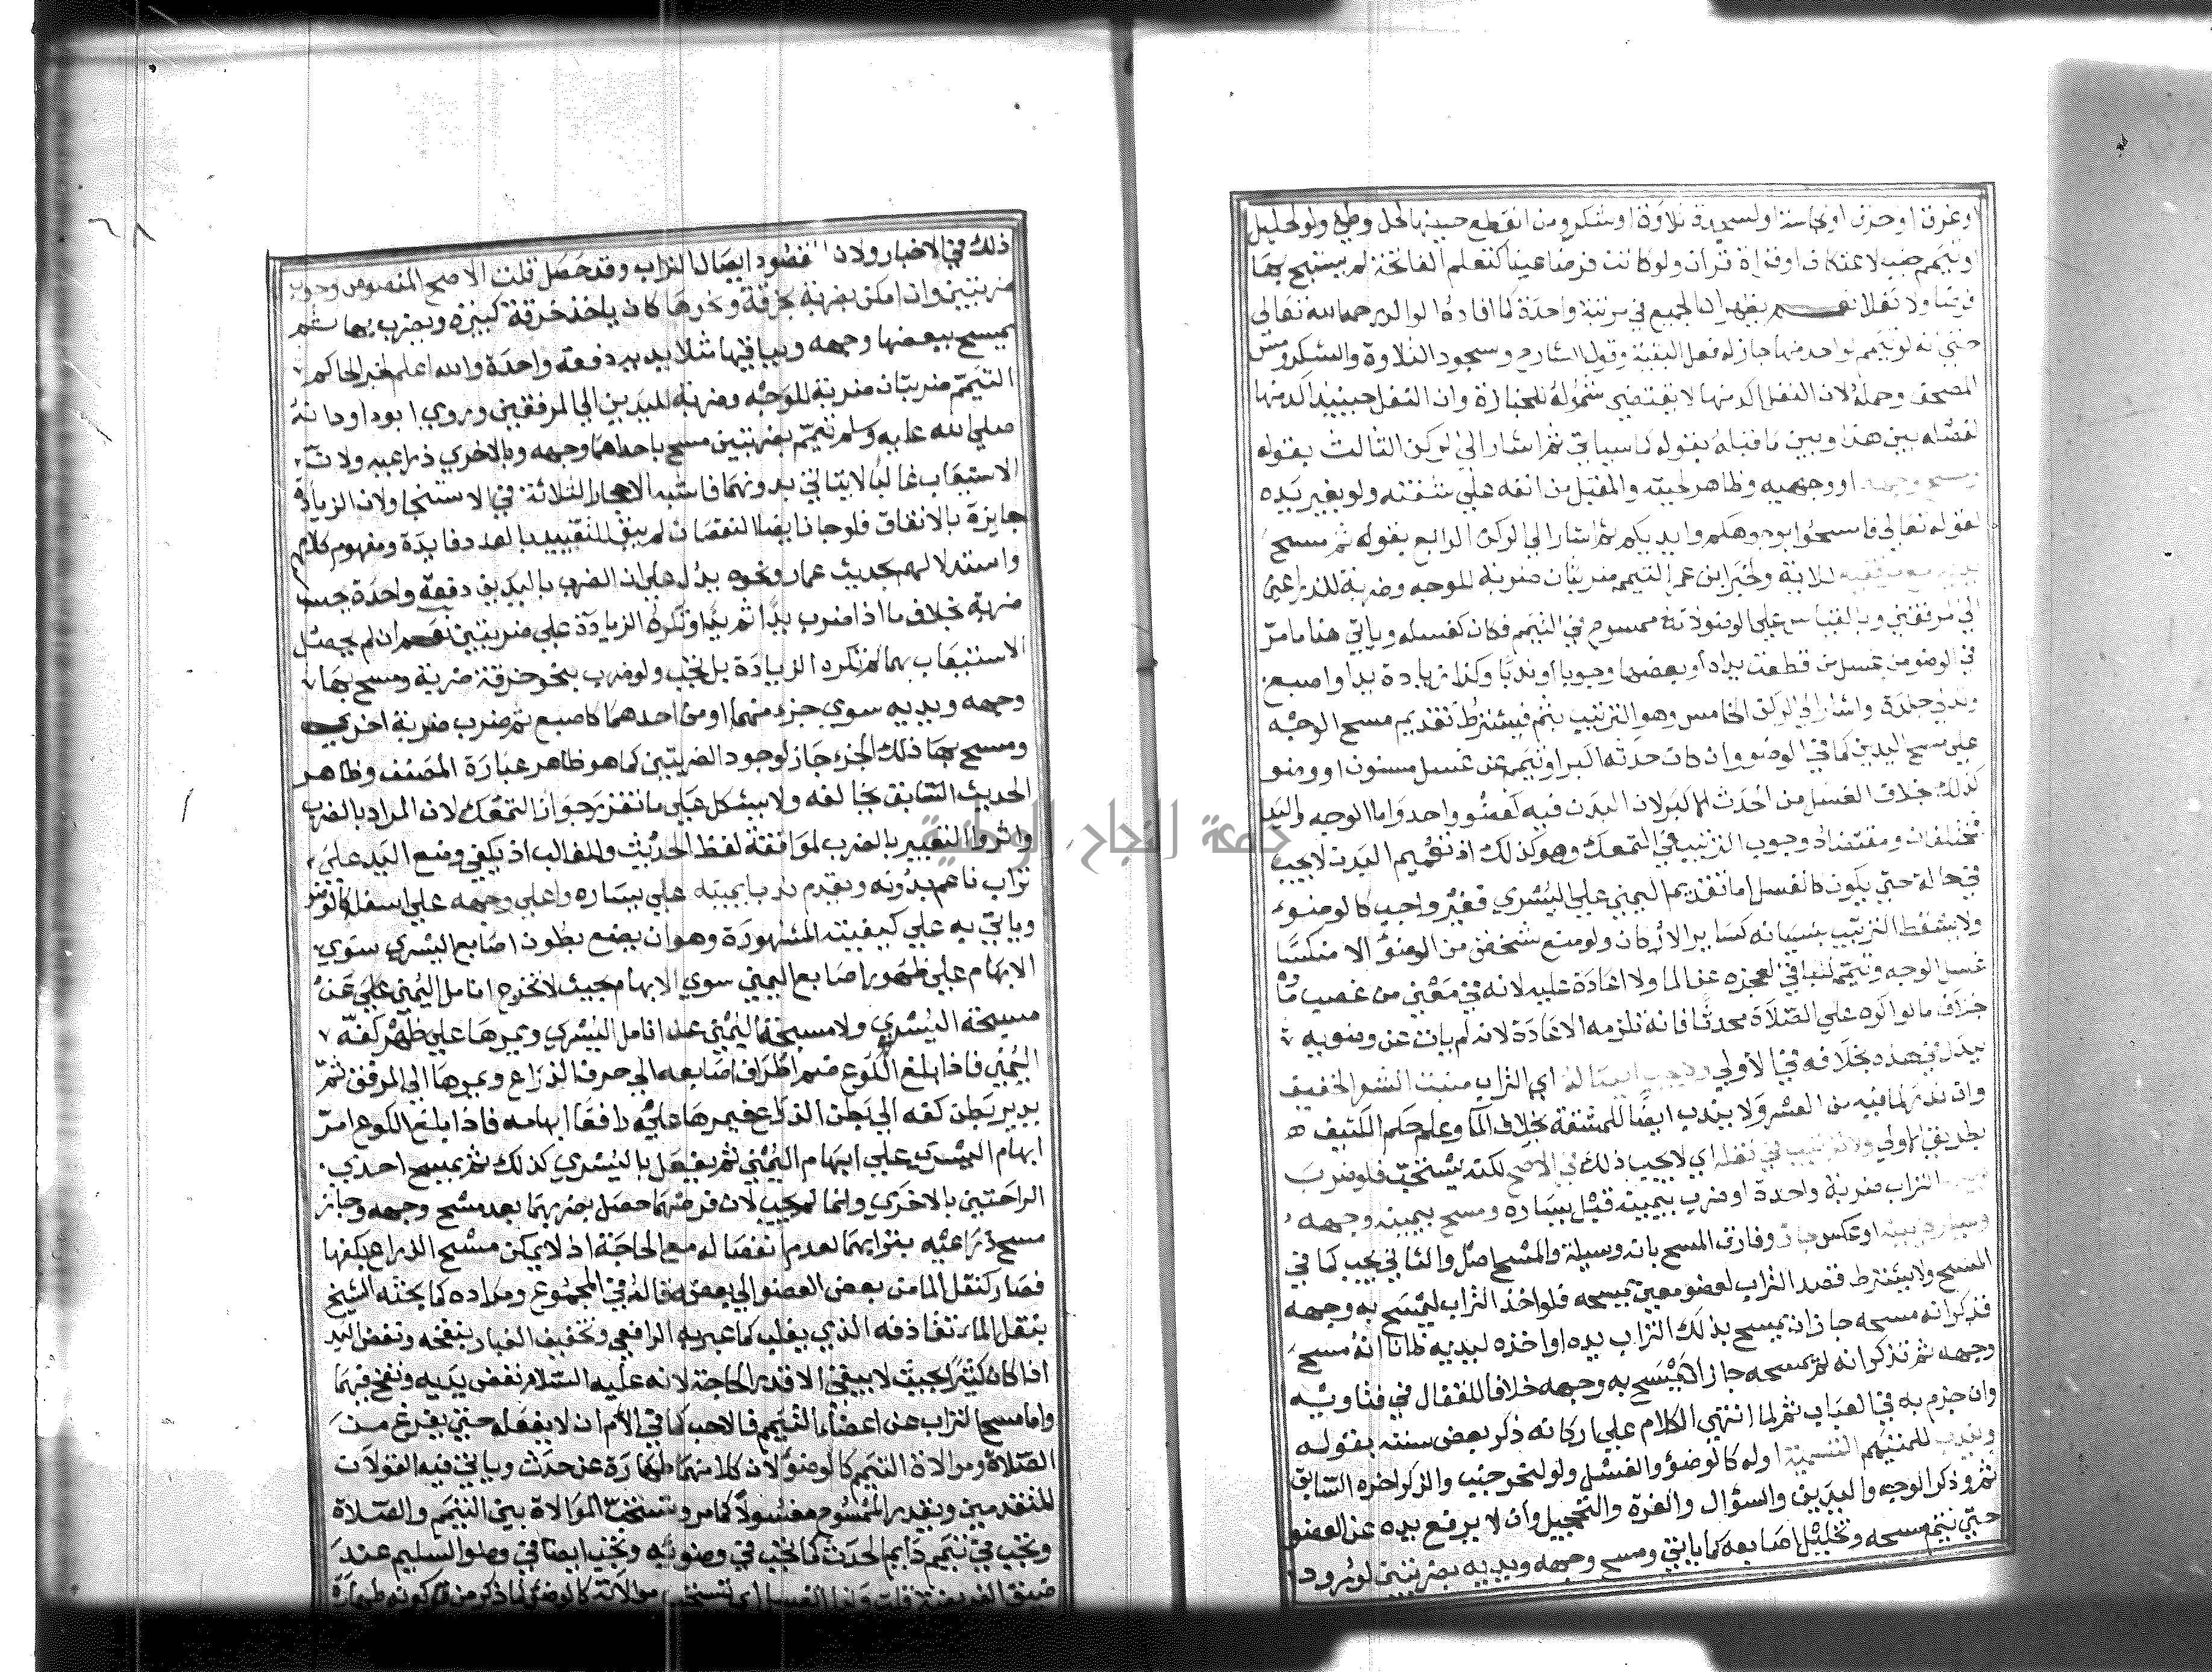 او غرق او حرق او نحاسة او لسجدة تلاوة او شكر ومن انقطع حيضها لحل وطئ ولو لحليل
او تيمم جنب لاعتكاف او قراة قران ولو كانت فرضا عينيا كتعلم الفاتحة لم يستبح بها
فرضا ولا نفلا نعم يظهر ان الجميع في مرتبة واحدة كما افاده الوالد رحمه الله تعالى
حتى انه لو تيمم لواحد منها جاز له فعل البقية وقول الشارح وسجود التلاوة والشكر ومس
المصحف وحمله لان النفل اكد منها لا يقتضي شموله للجنازة وان النفل حينئذ اكد منها
لفصله بين هذا وبين ما قبله بقوله لما سياتي ثم اشار الى الركن الثالث بقوله
ومسح وجهه او وجهيه وظاهر لحيته والمقبل من انفه على شفته ولو بغير يده
لقوله تعالى فامسحوا بوجوهكم وايديكم ثم اشار الى الركن الرابع بقوله ثم مسح
يديه مع مرفقيه للاية ولخبر ابن عمر التيمم ضربتان ضربة للوجه وضربة للذراعين
الى المرفقين وبالقياس على الوضو لانه ممسوح في التيمم فكان كغسله وياتي هنا ما مر
في الوضو من غسل من قطعت يداه او بعضهما وجوبا او ندبا وكذا زيادة يد او اصبع
وتدلي جلدة واشار الى الركن الخامس وهو الترتيب بثم فيشترط تقديم مسح الوجه
على مسح اليدين كما في الوضو وان كان حدثه اكبر او تيمم عن غسل مسنون او وضو
كذلك بخلاف الغسل من الحدث الاكبر لان البدن فيه كعضو واحد واما الوجه واليد
مختلفان ومقتضاه وجوب الترتيب في التمعك وهو كذلك اذ تعميم البدن لا يجب
في حالة حتى يكون كالغسل اما تقديم اليمنى على اليسرى فغير واجب كالوضوء
ولا يسقط الترتيب بنسيانه كساير الاركان ولو منع شخص من الوضؤ الا منكسا
غسل الوجه وتيمم للباقي لعجزه عن الما ولا اعادة عليه لانه في معنى من غصب ماؤه
بخلاف ما لو اكره على الصلاة محدثا فانه تلزمه الاعادة لانه لم يات عن وضويه
ببدل في هذه بخلافه في الاولى ولا يجب ايصاله اي التراب منبت الشعر الخفيف
وان ندر لما فيه من العسر ولا يندب ايضا للمشقة بخلاف الما وعلم حكم الكثيف
بطريق الاولى ولا ترتيب في نقله اي لا يجب ذلك في الاصح لكنه يستحب فلو ضرب
بيديه التراب ضربة واحدة او ضرب بيمينه قبل يساره ومسح بيمينه وجهه
وبيساره يمينه او عكس جاز وفارق المسح بانه وسيلة والمسح اصل والثاني يجب كما في
المسح ولا يشترط قصد التراب لعضو معين يمسحه فلو اخذ التراب ليمسح به وجهه
فذكر انه مسحه جاز ان يمسح بذلك التراب يده او اخذه ليديه ظانا انه مسح
وجهه ثم تذكر انه لم يمسحه جاز ان يمسح به وجهه خلافا للقفال في فتاويه
وان جزم به في العباب ثم لما انتهى الكلام على اركانه ذكر بعض سننه بقوله
وتندب للمتيمم التسمية اوله كالوضؤ والغسل ولو لنحو جنب والذكر اخره السابق
ثم وذكر الوجه واليدين والسؤال والغرة والتحجيل وان لا يرفع يده عن العضو
حتى يتم مسحه وتخليل اصابعه كما ياتي ومسح وجهه ويديه بضربتين لورود
ذلك في الاخبار ولان المقصود ايصال التراب وقد حصل قلت الاصح المنصوص وجوب
ضربتين وان امكن بضربة بخرقة ونحوها كان ياخذ خرقة كبيرة ويضرب بها ثم
يمسح ببعضها وجهه وبباقيها مثلا يديه دفعة واحدة والله اعلم لخبر الحاكم
التيمم ضربتان ضربة للوجه وضربة لليدين الى المرفقين وروى ابو داود انه
صلى الله عليه وسلم تيمم بضربتين مسح باحداهما وجهه وبالاخرى ذراعيه ولان
الاستيعاب غالبا لا يتاتى بدونهما فاشبه الاحجار الثلاثة في الاستنجا ولان الزيادة
جايزة بالاتفاق فلو جاز ايضا النقصان لم يبق للتقييد بالعدد فايدة ومفهوم كلامهم
واستدلالهم بحديث عمار ونحوه يدل على ان الضرب باليدين دفعة واحدة حسب
ضربة بخلاف ما اذا ضرب يدا ثم يدا وتكره الزيادة على ضربتين نعم ان لم يحصل
الاستيعاب بهما لم تكره الزيادة بل تجب ولو ضرب بنحو خرقة ضربة ومسح بها
وجهه ويديه سوى جزء منهما او من احدهما كاصبع ثم ضرب ضربة اخرى
ومسح بها ذلك الجزء جاز لوجود الضربتين كما هو ظاهر عبارة المصنف وظاهر
الحديث السابق يخالفه ولا يشكل على ما تقرر جواز التمعك لان المراد بالضرب
واثروا التعبير بالضرب لموافقة لفظ الحديث والغالب اذ يكفي وضع اليد على
تراب ناعم بدونه ويقدم ندبا يمينه على يساره واعلى وجهه على اسفله كالوضو
وياتي به على كيفيته المشهورة وهو ان يضع بطون اصابع اليسرى سوى
الابهام على ظهور اصابع اليمنى سوى الابهام بحيث لا تخرج انامل اليمنى على عن
مسبحة اليسرى ولا مسبحة اليمنى عن انامل اليسرى ويمرها على ظهر كفه
اليمنى فاذا بلغ الكوع ضم اطراف اصابعه الى حرف الذراع ويمرها الى المرفق ثم
يدير بطن كفه الى بطن الذراع فيمرها عليه رافعا ابهامه فاذا بلغ الكوع امر
ابهام اليسرى على ابهام اليمنى ثم يفعل باليسرى كذلك ثم يمسح احدى
الراحتين بالاخرى وانما لم يجب لان فرضهما حصل بضربهما بعد مسح وجهه وجاز
مسح ذراعيه بترابهما لعدم انفصاله مع الحاجة اذ لا يمكن مسح الذراع بكفها
فصار كنقل الما من بعض العضو الى بعضه قاله في المجموع ومراده كما بحثه الشيخ
بنقل الما تقاذفه الذي يغلب كما عبر به الرافعي وتخفيف الغبار بنفخه ونفض اليد
اذا كان كثيرا بحيث لا يبقى الا قدر الحاجة لانه عليه السلام نفض يديه ونفخ فيهما
واما مسح التراب عن اعضاء التيمم فالاحب كما في الام ان لا يفعله حتى يفرغ من
الصلاة وموالاة التيمم كالوضؤ لان كلا منهما طهارة عن حدث وياتي فيه القولان
المتقدمين ويقدر الممسوح مغسولا كما مر وتستحب الموالاة بين التيمم والصلاة
وتجب في تيمم دايم الحدث كما تجب في وضوئه وتجب ايضا في وضو السليم عند
ضيق الفريضة قلت وكذا الغسل اي تستحب موالاته كالوضؤ لما ذكر من كونه طهارة